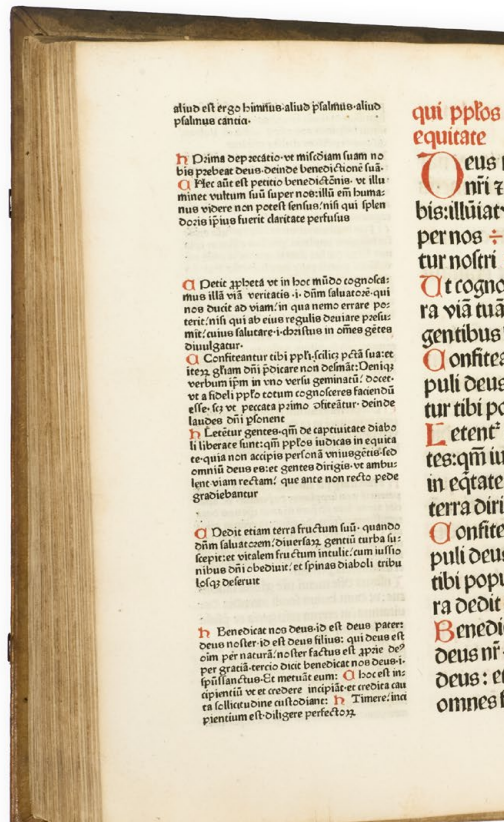 aliud est ergo himnus·aliud psalmus·aliud
psalmus cantici·
h Prima deprecatio·vt miscdiam suam no
bis prebeat deus·deinde benedictionē suā·
C Hec aūt est petitio benedictōnis· vt illu
minet vultum suū super nos:illū em̄ huma⸗
nus videre non potest sensus⸝nisi qui splen
doris ip̄ius fuerit claritate perfusus
C Petit ꝓpheta vt in hoc mūdo cognosca⸗
mus illā viā veritatis ·i· dn̄m saluatorē·qui
nos ducit ad viam⸝in qua nemo errare po⸗
terit⸝nisi qui ab eius regulis deuiare p̄su⸗
mit⸝cuius salutare·i·christus in om̄es gētes
diuulgatur·
C Confiteantur tibi pp̄li·scilicꝫ pctā sua:et
iteꝝ gl̄iam dn̄i p̄dicare non desināt:Deniqꝫ
verbum ip̄m in vno versu geminatū⸝ docet⸗
vt a fideli pp̄lo totum cognosceres faciendū
esse· scꝫ vt peccata primo ꝓfiteātur· deinde
laudes dn̄i psonent
h Letētur gentes·qm̄ de captiuitate diabo
li liberate sunt:qm̄ pp̄los iudicas in equita
te·quia non accipis personā vniusgētis·sed
omniū deus es:et gentes dirigis·vt ambu⸗
lent viam rectam⸝ que ante non recto pede
gradiebantur
C Dedit etiam terra fructum suū· quando
dn̄m saluatorem⸝diuersaꝝ gentiū turba su⸗
scepit:et vitalem fructum intulit⸝cum iussio
nibus dn̄i obediuit⸝et spinas diaboli tribu
losqꝫ deseruit
h Benedicat nos deus·id est deus pater:
deus noster·id est deus filius: qui deus est
oim per naturā⸝noster factus est ꝓprie de⁹
per gratiā·tercio dicit benedicat nos deus·i·
spūssanctus·Et metuāt eum: C hoc est in⸗
cipientiū vt et credere incipiāt·et credita cau
ta sollicitudine custodiant: h Timere⸝inci
pientium est·diligere perfectoꝝ
qui pp̄los
equitate
Deus
nr̄i ⁊
bis:illūiat
per nos ÷
tur nostri
Ut cogno
ra viā tuā
gentibus
Confitea
puli deus
tur tibi po
Letent᷑
tes:qm̄ iu
in eq̄tate
terra diri
Confite
puli deus
tibi popu
ra dedit
Benedi
deus nr̄
deus: et
omnes f